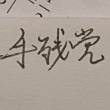 手残党